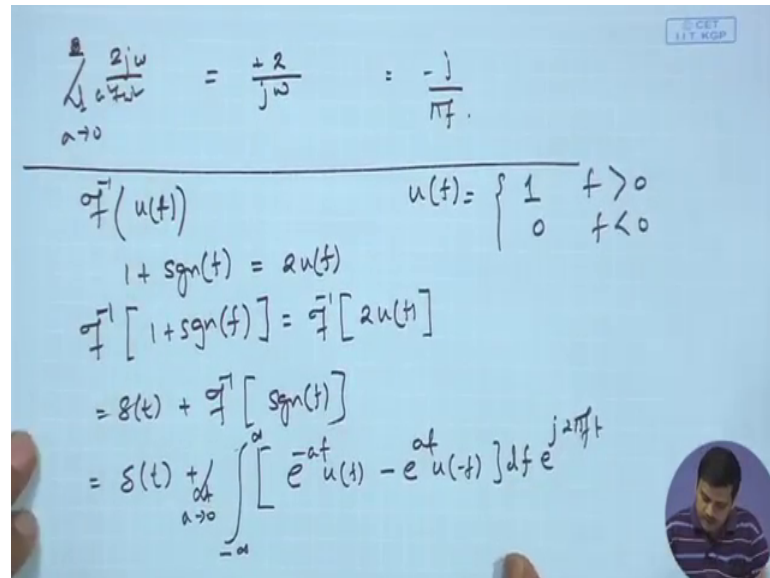 © CET
I.I.T. KGP
= +2/jω = -j/πf.
a→0
F⁻¹(u(f)) u(f) = { 1 f > 0
0 f < 0
1 + sgn(f) = 2u(f)
F⁻¹[1 + sgn(f)] = F⁻¹[2u(f)]
= δ(t) + F⁻¹[sgn(f)]
= δ(t) + a→0 ∫ [e^{-af} u(f) - e^{af} u(-f)] df e^{j2πft}